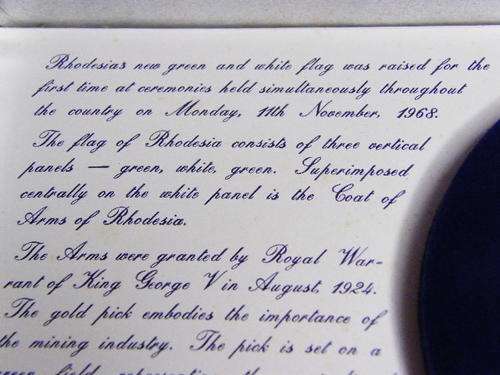 Rhodesias new green and white flag was raised for the
first time at ceremonies held simultaneously throughout
the country on Monday, 11th November, 1968.
The flag of Rhodesia consists of three vertical
panels — green, white, green. Superimposed
centrally on the white panel is the Coat of
Arms of Rhodesia.
The Arms were granted by Royal War-
rant of King George V in August, 1924.
The gold pick embodies the importance of
the mining industry. The pick is set on a
green field